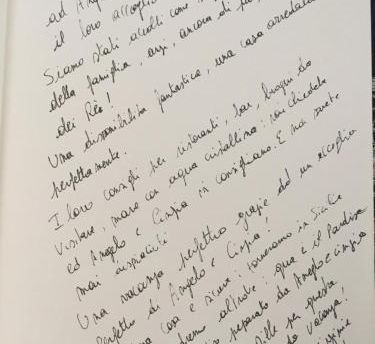 ad Ang
il loro accogl
Siamo stati accolti come
della famiglia, anzi, ancora di più,
dei Re!
Una disponibilità fantastica, una casa arredata
perfettamente.
I loro consigli per ristoranti, bar, luoghi da
visitare, mare con acqua cristallina: voi chiedete
ed Angelo e Cinzia vi consigliano. E non sarete
mai dispiaciuti
Una vacanza perfetta grazie ad un'accoglien
perfetta di Angelo e Cinzia!
una cosa è sicura: torneremo in Sicilia
altrove: qua è il Paradiso
preparato da Angelo e Cinzia
Mille per questa
vacanza,